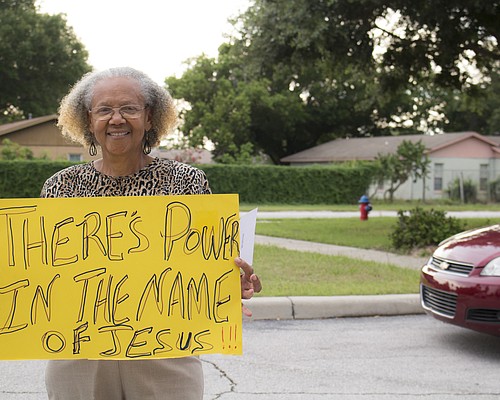 THERE'S POWER
IN THE NAME
OF JESUS!!!